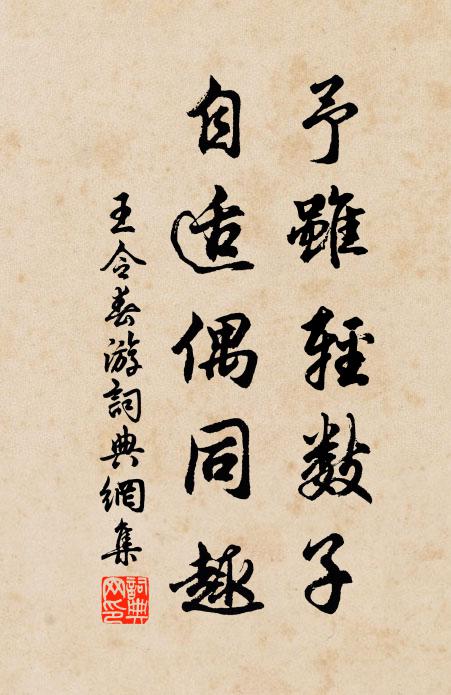 予雖輕數子
自适偶同趣
王令春游詞典網集
詞典
网印